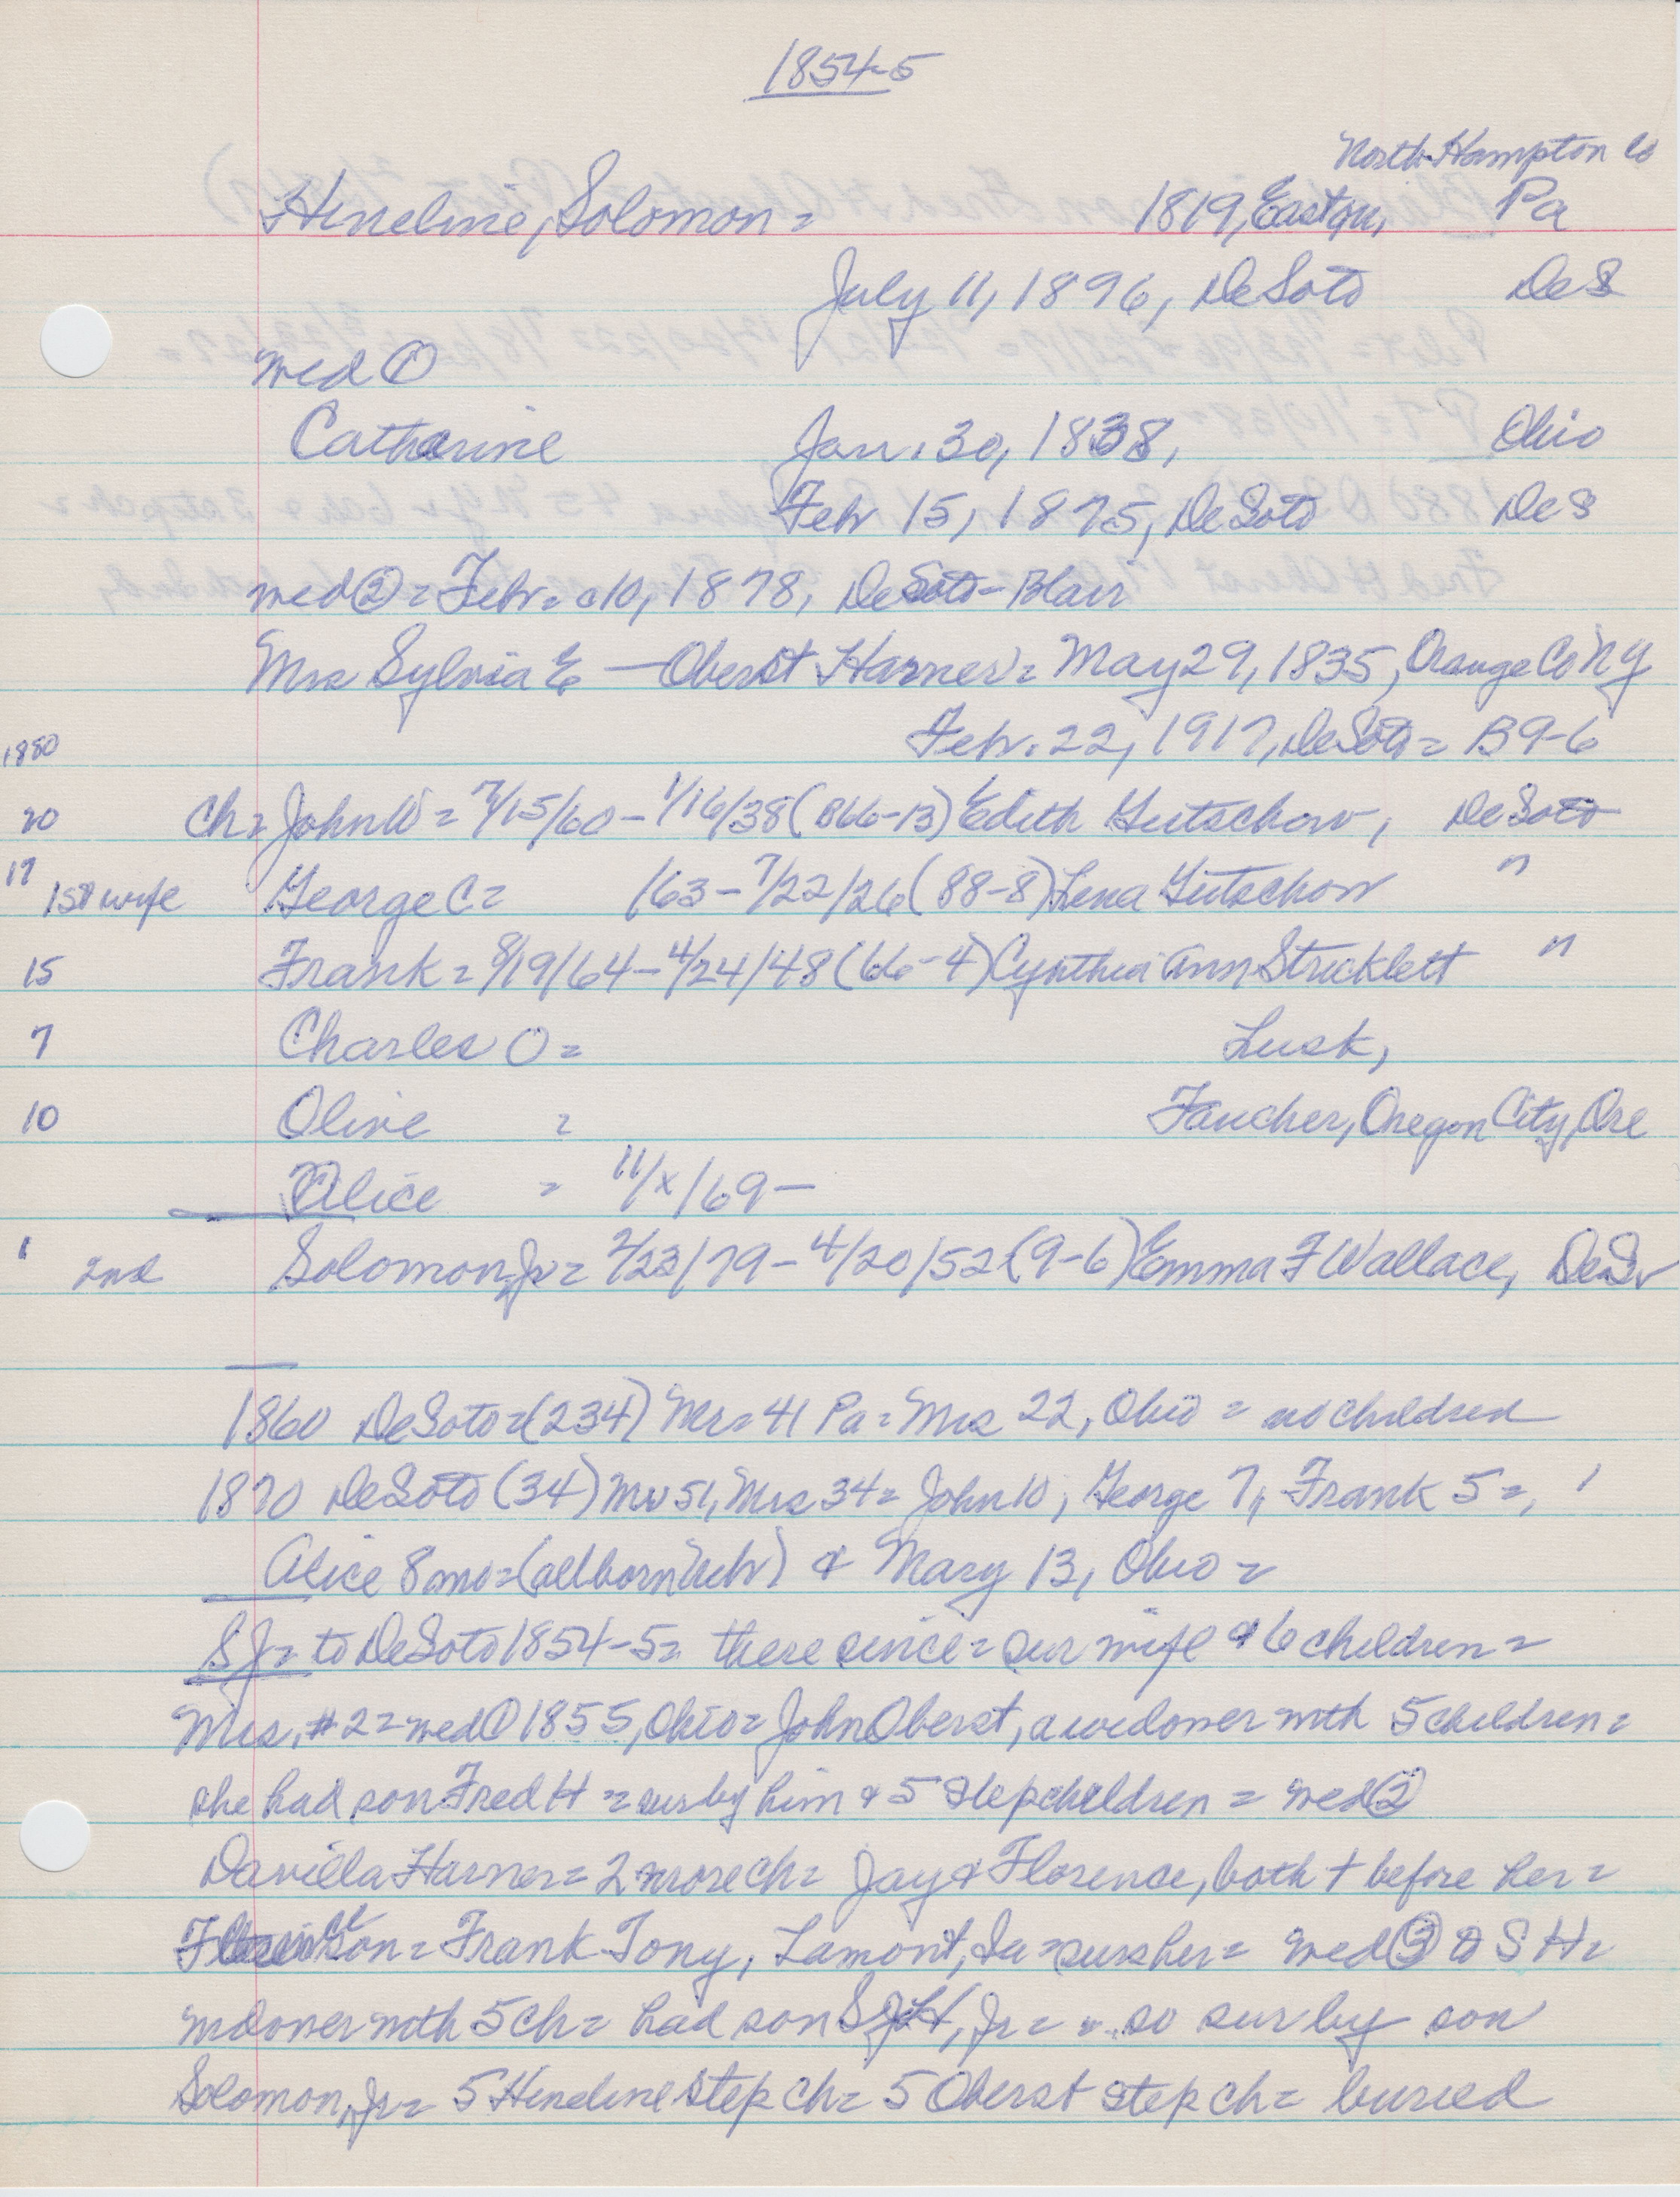 1854-5
North-Hampton Co
Hineline, Solomon = 1819, Easton, Pa
July 11, 1896, DeSoto DeS
med ①
Catharine Jan. 30, 1838, Ohio
Feb 15, 1875, DeSoto DeS
med ② = Febr. 10, 1878, DeSoto - Blair
Mrs Sylvia E — Oberst Harner = May 29, 1835, Orange Co NY
Febr. 22, 1917, DeSoto = B9-6
1880
20 Ch = John W = 7/15/60 - 1/16/38 (B66-13) Edith Gutschow, DeSoto
17 1st wife George C = /63 - 7/22/26 (88-8) Lena Gutschow "
15 Frank = 8/19/64 - 4/24/48 (66-4) Cynthia Ann Stricklett "
7 Charles O = Lusk,
10 Olive = Faucher, Oregon City, Ore
Alice = 11/x/69 —
1 2nd Solomon, Jr = 2/23/79 - 4/20/52 (9-6) Emma F Wallace, DeS
1860 DeSoto = (234) Mr = 41 Pa = Mrs 22, Ohio = no children
1870 DeSoto (34) Mr 51, Mrs 34 = John 10, George 7, Frank 5 =,
Alice 8 mo = (all born Nebr) & Mary 13, Ohio =
SJ = to DeSoto 1854-5 = there since = sur wife & 6 children =
Mrs. #2 = med ① 1855, Ohio = John Oberst, a widower with 5 children =
she had son Fred H = sur by him & 5 stepchildren = med ②
Davilla Harner = 2 more ch = Jay & Florence, both † before her =
son = Frank Tony, Lamont, Ia = surs her = med ③ SH =
widower with 5 ch = had son SJH, Jr = so sur by son
Solomon, Jr = 5 Hineline step ch = 5 Oberst step ch = buried